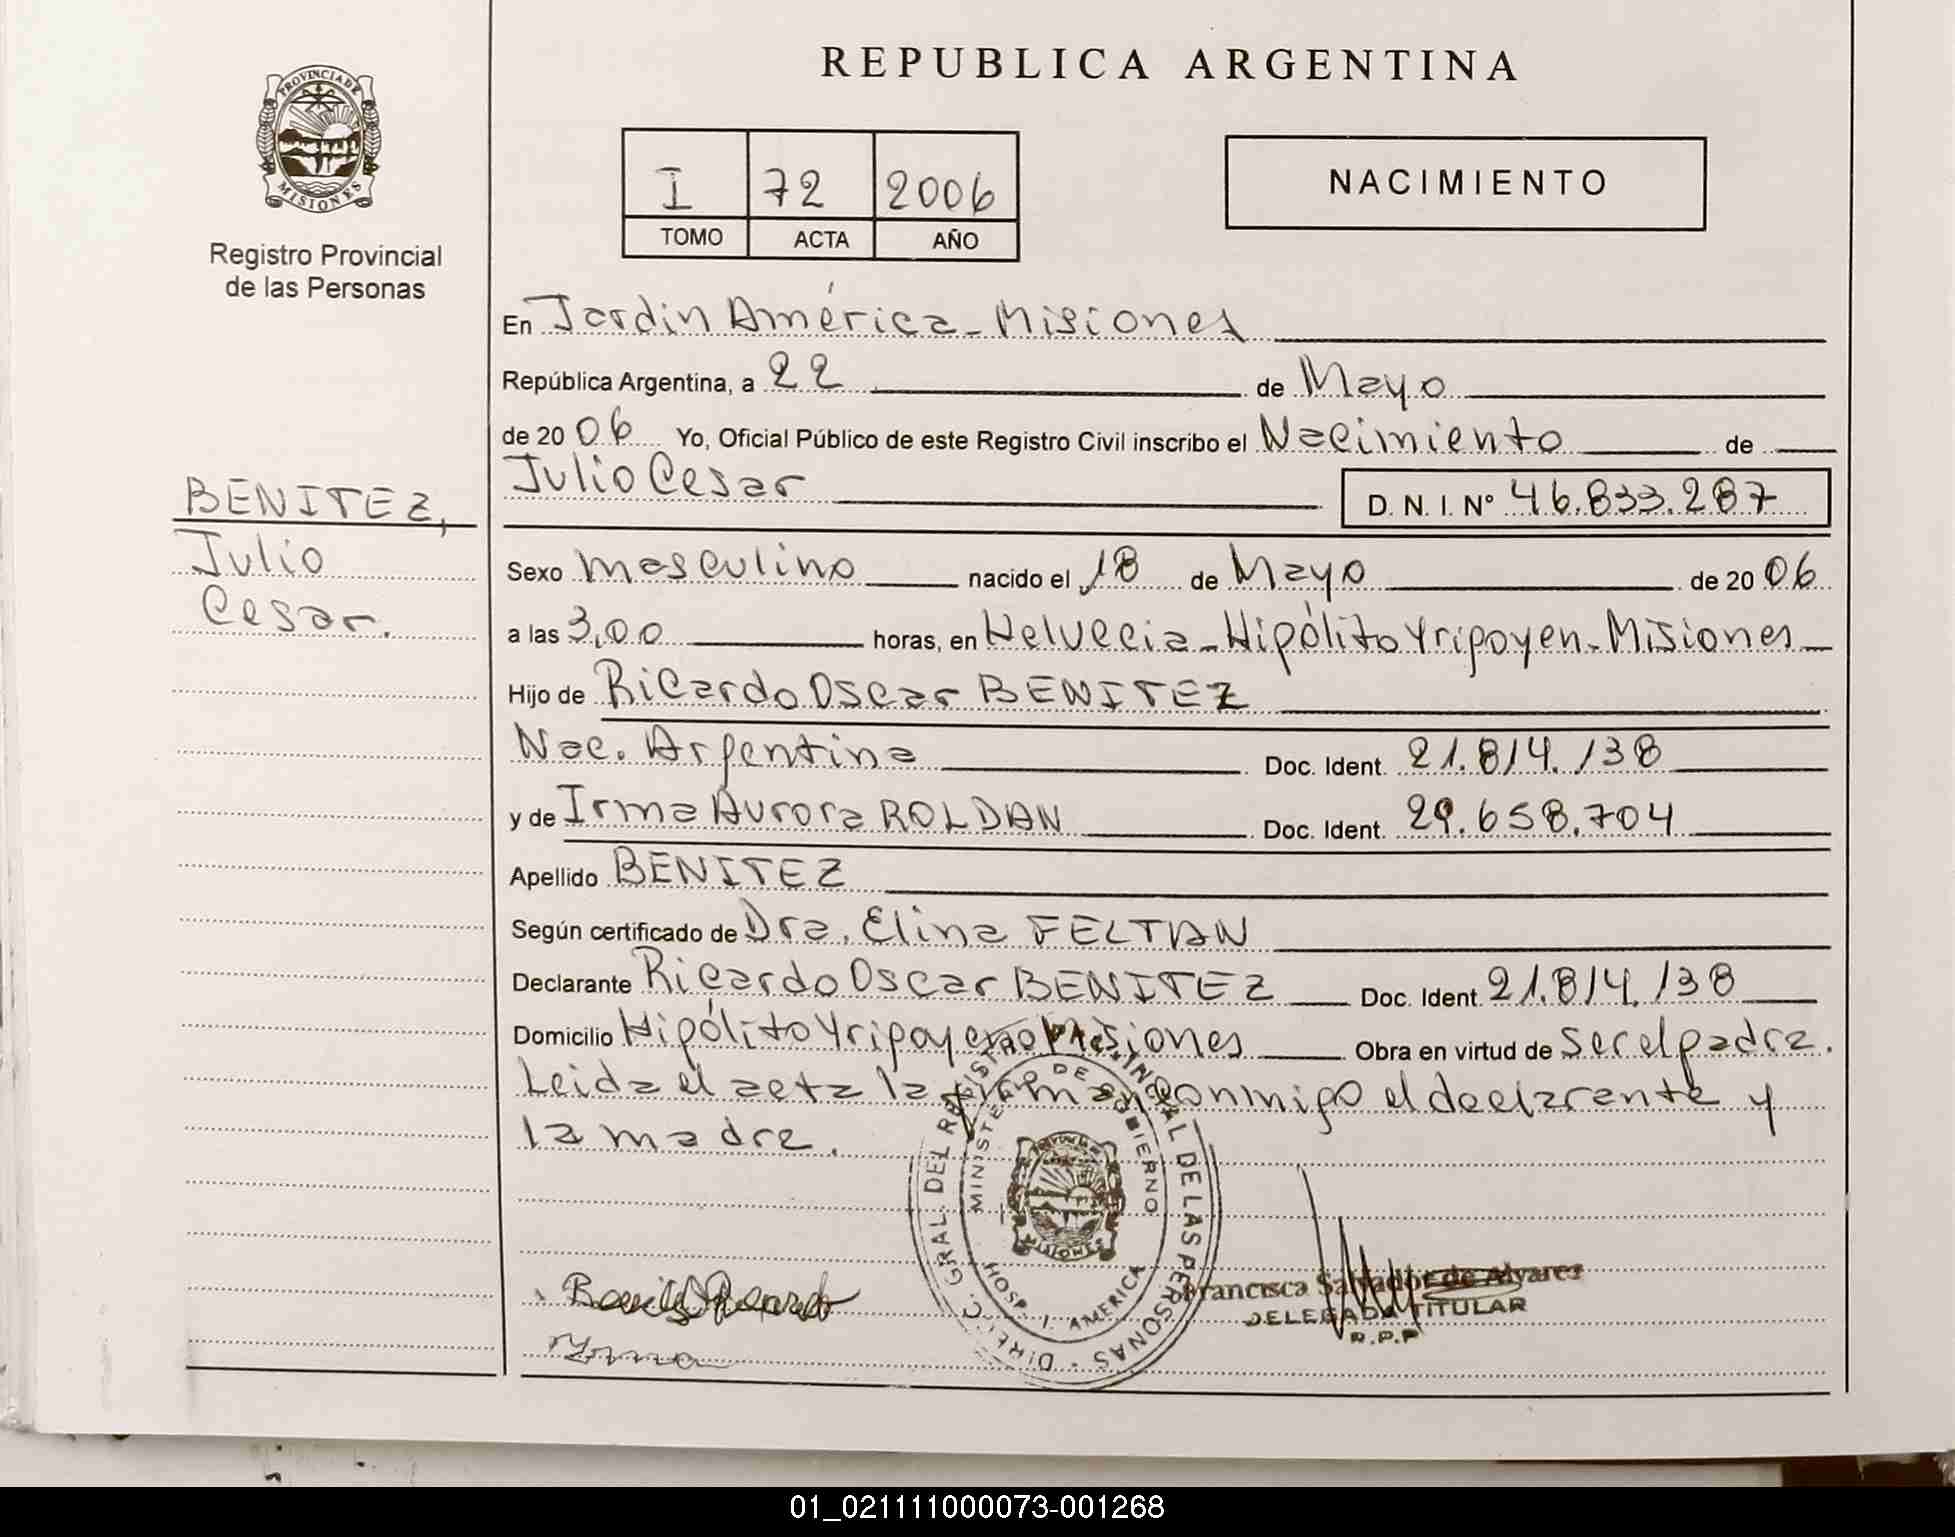 REPUBLICA ARGENTINA
PROVINCIA DE MISIONES
Registro Provincial
de las Personas
I 72 2006
TOMO ACTA AÑO
NACIMIENTO
En Jardin América - Misiones
República Argentina, a 22 de Mayo
de 2006 Yo, Oficial Público de este Registro Civil inscribo el Nacimiento de
Julio Cesar D. N. I. Nº 46.833.287
BENITEZ,
Julio
Cesar.
Sexo masculino nacido el 18 de Mayo de 2006
a las 3,00 horas, en Helvecia - Hipólito Yrigoyen - Misiones
Hijo de Ricardo Oscar BENITEZ
Nac. Argentina Doc. Ident. 21.814.138
y de Irma Aurora ROLDAN Doc. Ident. 29.658.704
Apellido BENITEZ
Según certificado de Dra. Elina FELTAN
Declarante Ricardo Oscar BENITEZ Doc. Ident. 21.814.138
Domicilio Hipólito Yrigoyen Misiones Obra en virtud de ser el padre.
Leida el acta la firman conmigo el declarante y
la madre.
DIREC. GRAL. DEL REGISTRO PROVINCIAL DE LAS PERSONAS
MINISTERIO DE GOBIERNO
MISIONES
AMERICA
Francisca Salvador de Alvarez
DELEGADA TITULAR
R.P.P
Benitez Ricardo
Irma
01_021111000073-001268